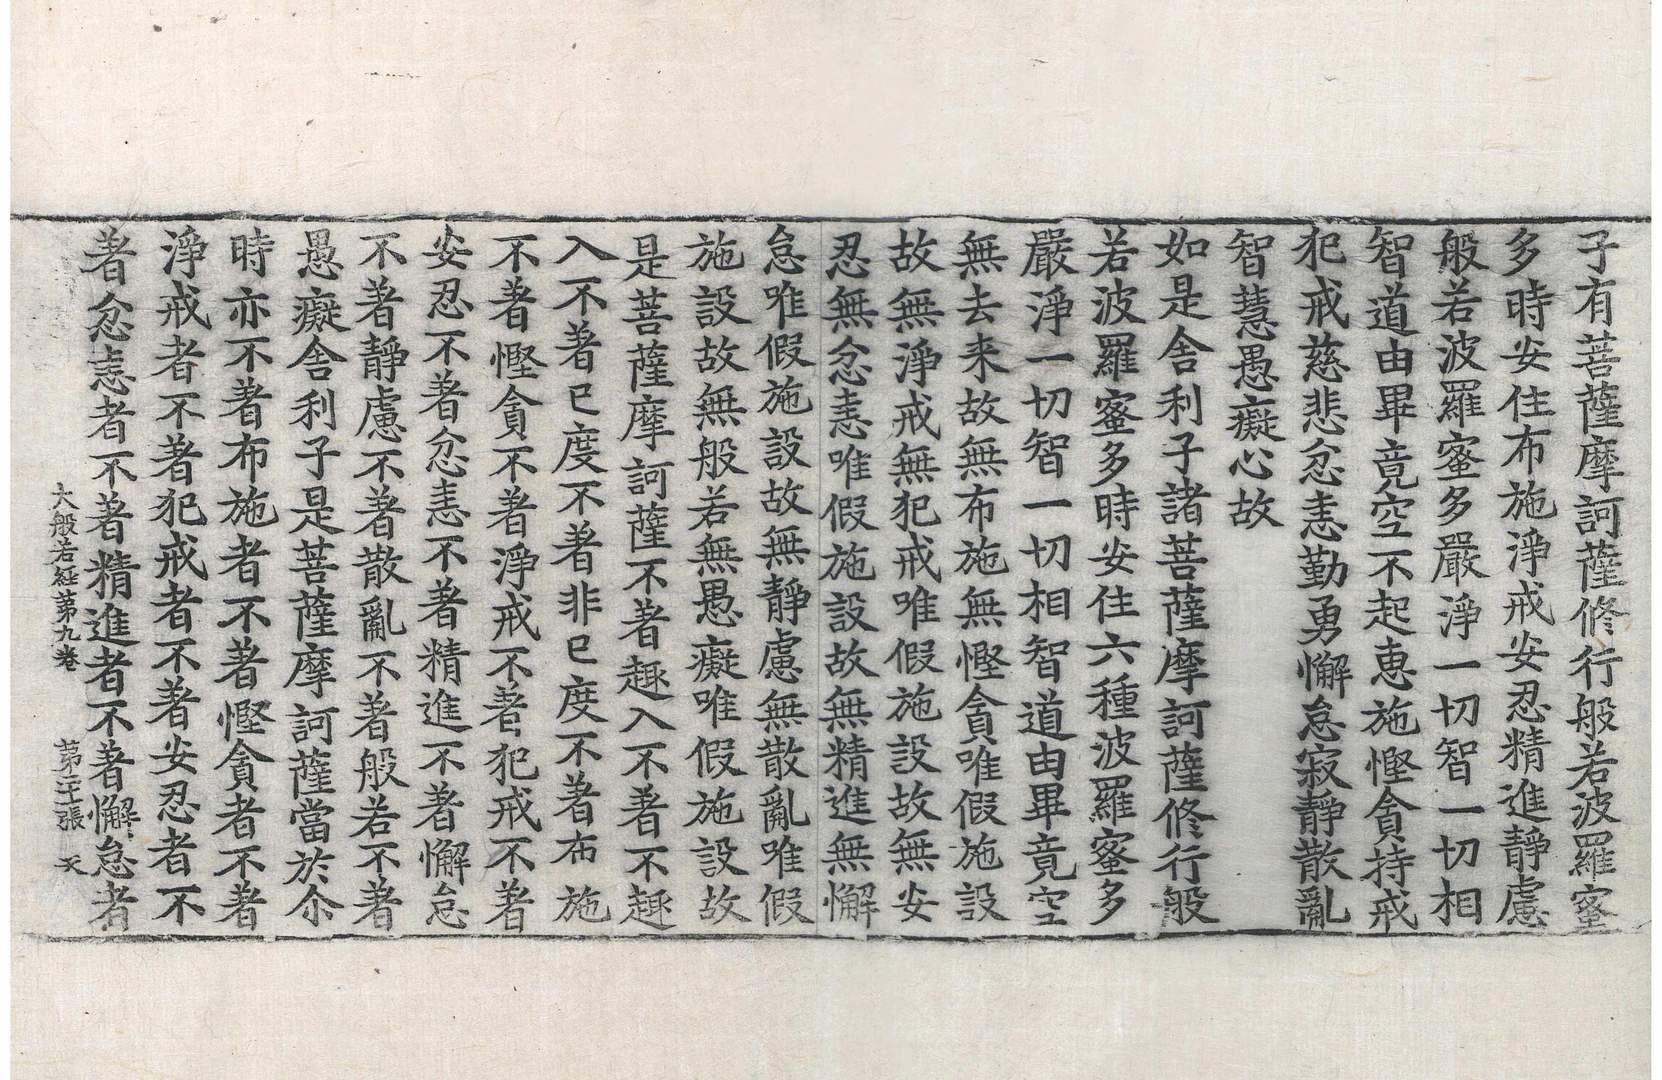 子有菩薩摩訶薩修行般若波羅蜜
多時安住布施淨戒安忍精進靜慮
般若波羅蜜多嚴淨一切智一切相
智道由畢竟空不起惠施慳貪持戒
犯戒慈悲忿恚勤勇懈怠寂靜散亂
智慧愚癡心故
如是舍利子諸菩薩摩訶薩修行般
若波羅蜜多時安住六種波羅蜜多
嚴淨一切智一切相智道由畢竟空
無去来故無布施無慳貪唯假施設
故無淨戒無犯戒唯假施設故無安
忍無忿恚唯假施設故無精進無懈
怠唯假施設故無靜慮無散亂唯假
施設故無般若無愚癡唯假施設故
是菩薩摩訶薩不著趣入不著不趣
入不著已度不著非已度不著布施
不著慳貪不著淨戒不著犯戒不著
安忍不著忿恚不著精進不著懈怠
不著靜慮不著散亂不著般若不著
愚癡舍利子是菩薩摩訶薩當於尒
時亦不著布施者不著慳貪者不著
淨戒者不著犯戒者不著安忍者不
著忿恚者不著精進者不著懈怠者
大般若經第九卷 第張